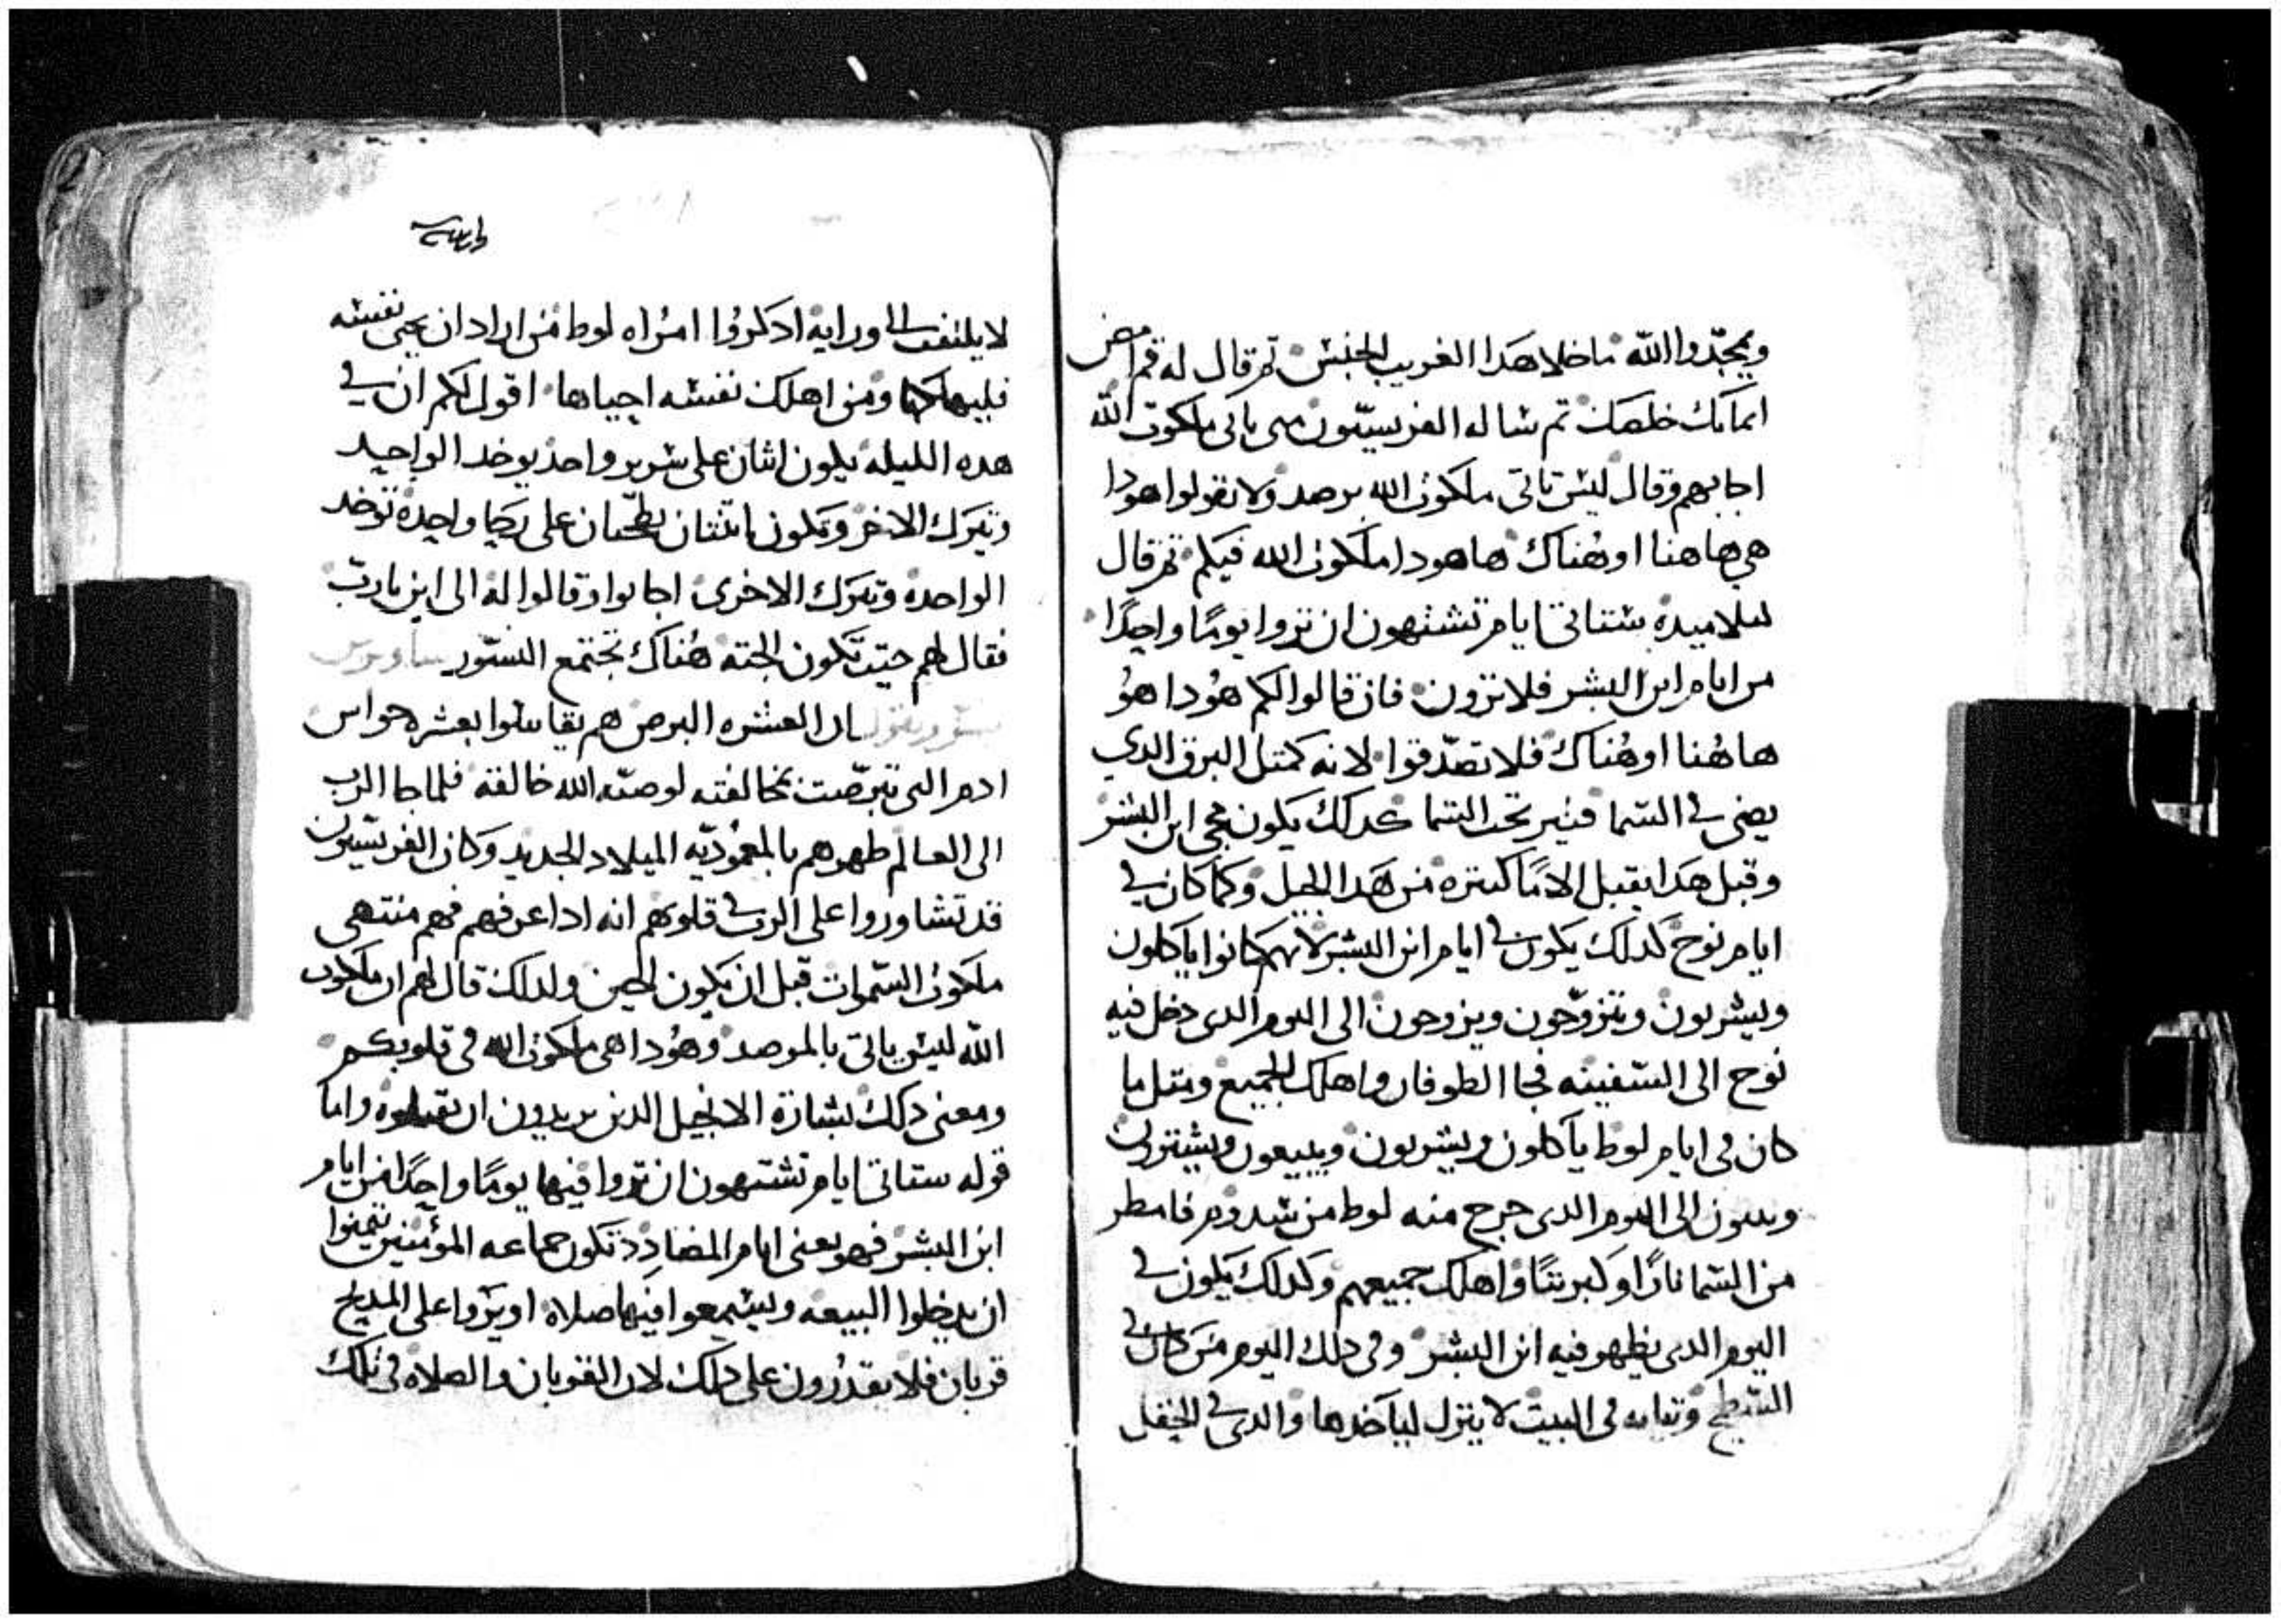 ويمجّدوا الله ما خلا هدا الغريب الجنس تم قال له قم امض
ايمانك خلصك تم ساله الفريسيّون متى ياتى ملكوت الله
اجابهم وقال ليس تاتى ملكوت الله برصد ولا يقولوا هودا
هي هاهنا او هُناك هاهودا ملكوت الله فيكم تم قال
لتلاميده ستاتى ايام تشتهون ان تروا يومًا واحدًا
من ايام ابن البشر فلا ترون فان قالوا لكم هُودا هوُ
هاهُنا او هُناك فلا تصدّقوا لانه كمتل البرق الدي
يضى في السّما فينير تحت السّما كدلك يكون مجى ابن البشر
وقبل هدا يقبل الامًا كتيره من هدا الجيل وكما كان في
ايام نوح كدلك يكون في ايام ابن البشر لانهم كانوا ياكلون
ويشربون ويتزوّجون ويزوجون الى اليوم الدى دخل فيه
نوح الى السّفينه فجا الطوفان واهلك الجميع ومتل ما
كان فى ايام لوط ياكلون ويشربون ويبيعون ويشترون
ويبنون الى اليوم الدى خرج منه لوط من سدوم فامطر
من السّما نارًا وكبريتًا واهلك جميعهم وكدلك يكون في
اليوم الدى يظهر فيه ابن البشر وفى دلك اليوم من كان في
السّطح وتيابه فى البيت لا ينزل لياخدها والدى في الحقل
لا يلتفت الى ورايه ادكروُا امرْاه لوط من اراد ان يحيى نفسه
فليهلكها ومن اهلك نفسه احياها اقول لكم ان في
هده الليله يكون اثنان على سرير واحد يوخد الواحد
ويترك الاخر وتكون اثنتان يطحّنان على رحا واحدة توخد
الواحدة وتترك الاخرى اجابوا وقالوا له الى اين يارب
فقال لهم حيت تكون الجته هُناك تجتمع النسّور
ان العشره البرص هم يقايسوا بعشره حواس
ادم التى تبرّصت بمخالفته لوصيّه الله خالقه فلما جا الرب
الى العالم طهرهم بالمعموُديّه الميلاد الجديد وكان الفريسّيون
قد تشاوروا على الرب في قلوبهم انه ادا عرفهم فهم منتهى
ملكوت السّموات قبل ان يكون الحين ولدلك قال لهم ان ملكوت
الله ليس ياتى بالمرصد وهوُدا هى ملكوت الله فى قلوبكم
ومعنى دلك بشارة الانجيل الدين يريدون ان يقبلوه واما
قوله ستاتى ايام تشتهون ان تروا فيها يومًا واحدًا من ايام
ابن البشر فهو يعنى ايام المضادِد تكون جماعه المؤمنين يتمنوا
ان يدخلوا البيعه ويسمعوا فيها صلاة او يروا على المدبح
قربان فلا يقدرُون على دلك لان القربان والصلاة فى تلك